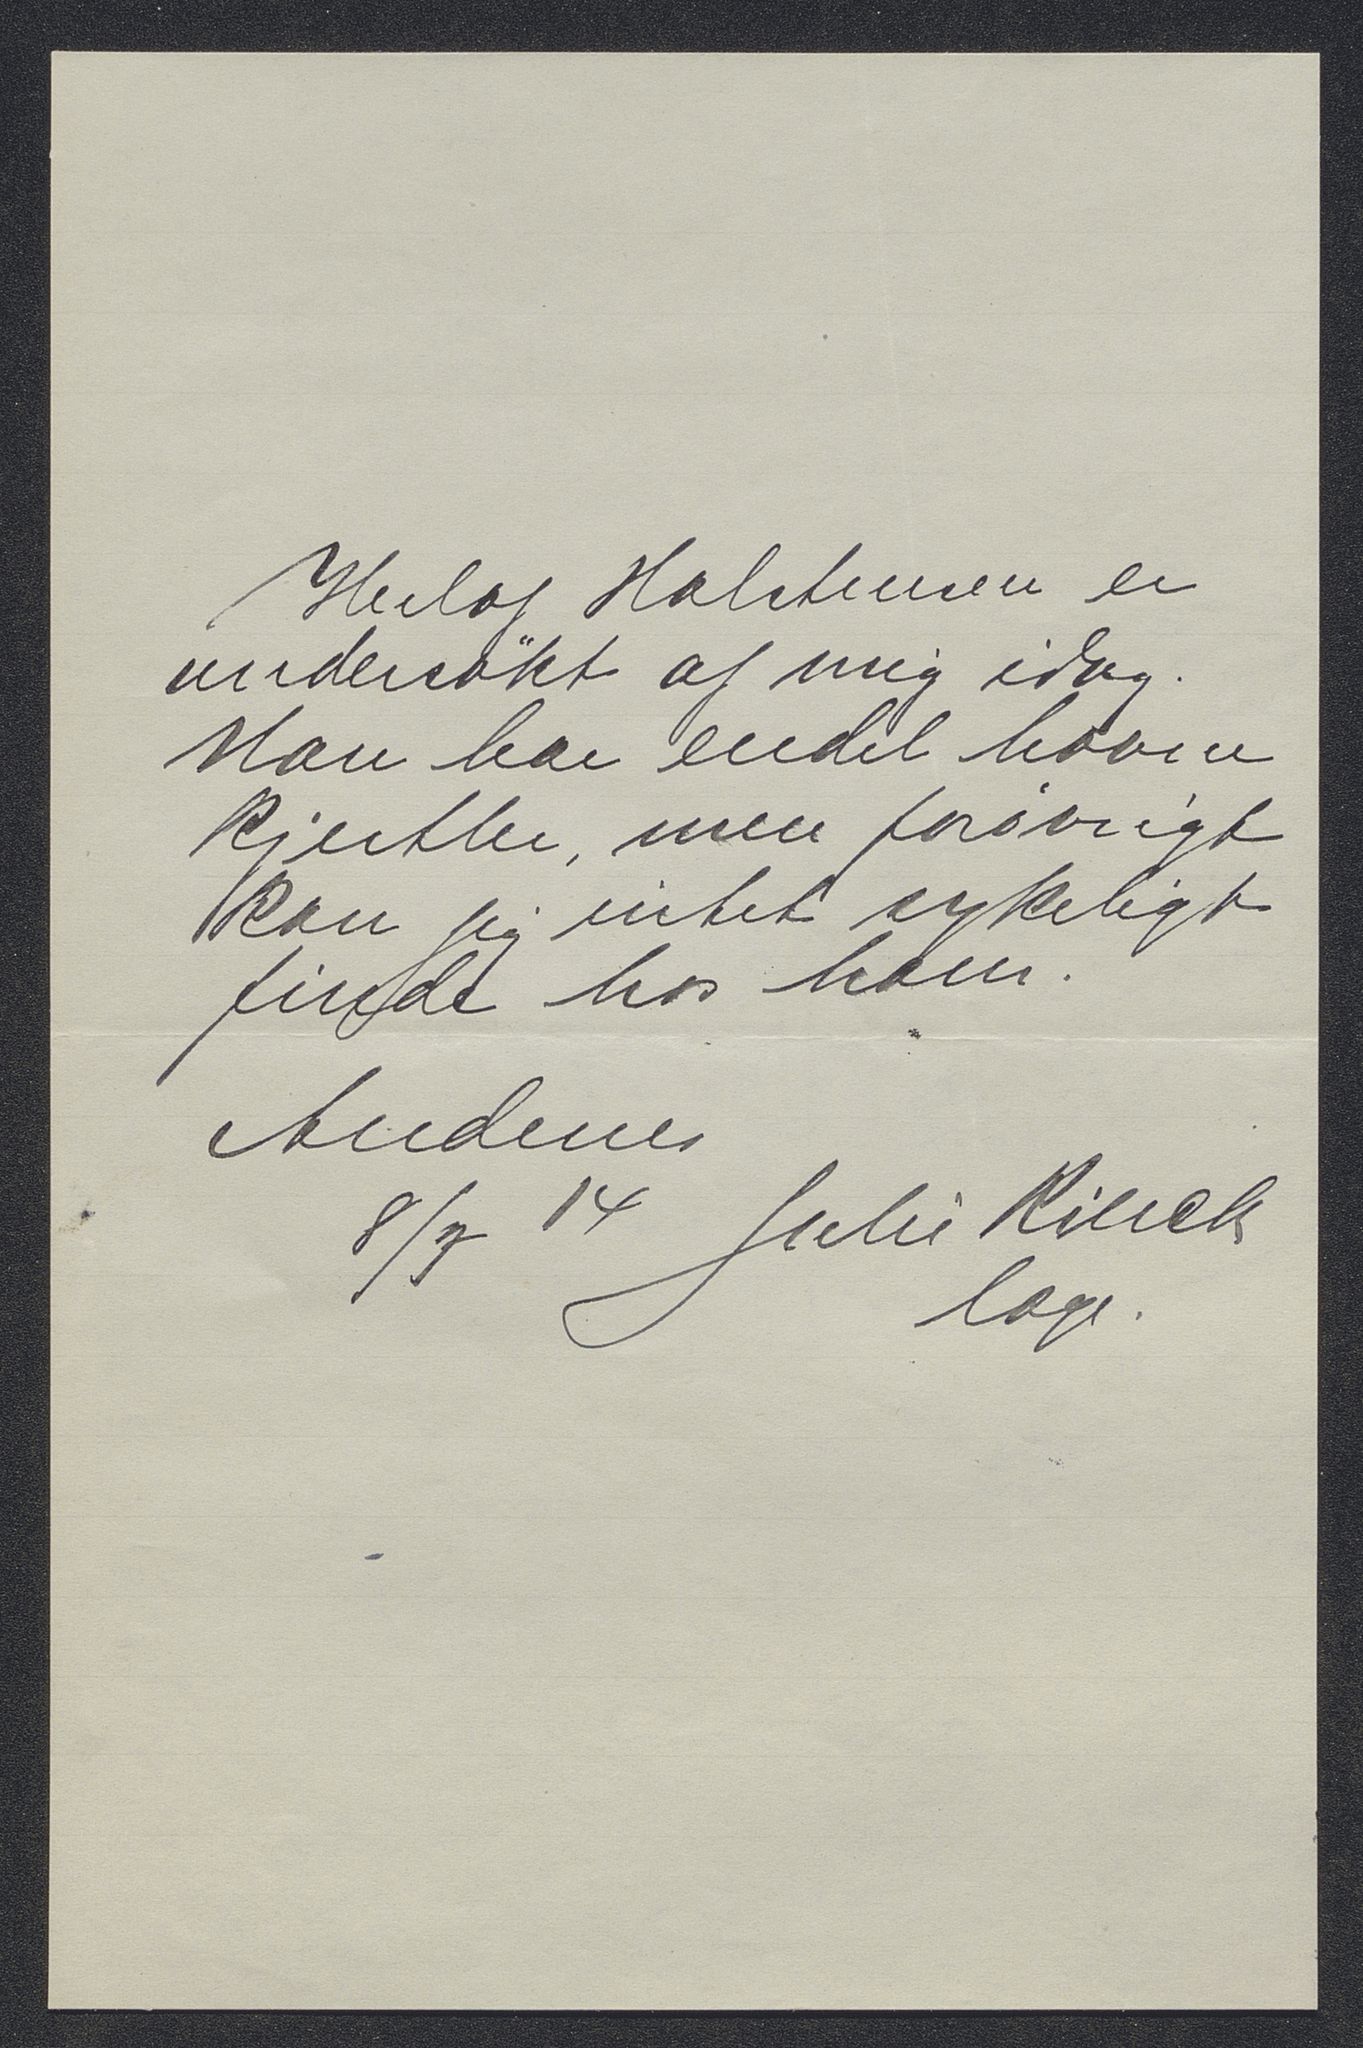 Herlof Halstensen er
undersökt af mig idag.
Han har endel hovne
kjertler, men forövrigt
kan jeg intet sykeligt
finde hos ham.
Andenes
8/7 14 Julie
læge.